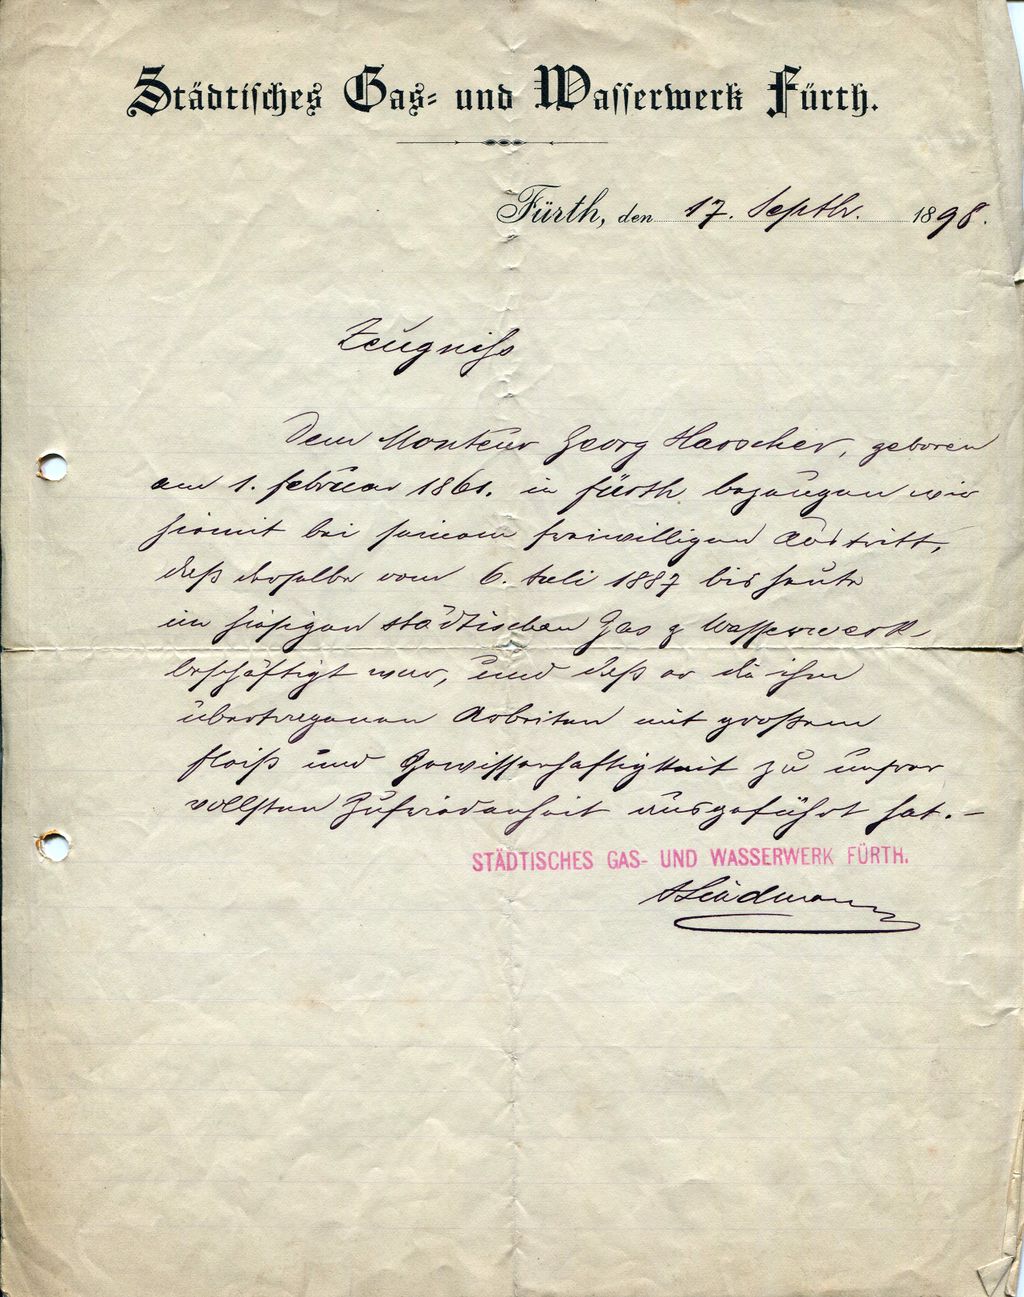 Städtisches Gas- und Wasserwerk Fürth.
Fürth, den 17. Septbr. 1898.
Zeugniß
Dem Monteur Georg Harscher, geboren
am 1. Februar 1861. in Fürth, bezeugen wir
hiermit bei seinem freiwilligen Austritt,
daß derselbe vom 6. Juli 1887 bis heute
im hiesigen städtischen Gas & Wasserwerk
beschäftigt war, und daß er die ihm
übertragenen Arbeiten mit großem
Fleiß und Gewissenhaftigkeit zu unsrer
vollsten Zufriedenheit ausgeführt hat. –
STÄDTISCHES GAS- UND WASSERWERK FÜRTH.